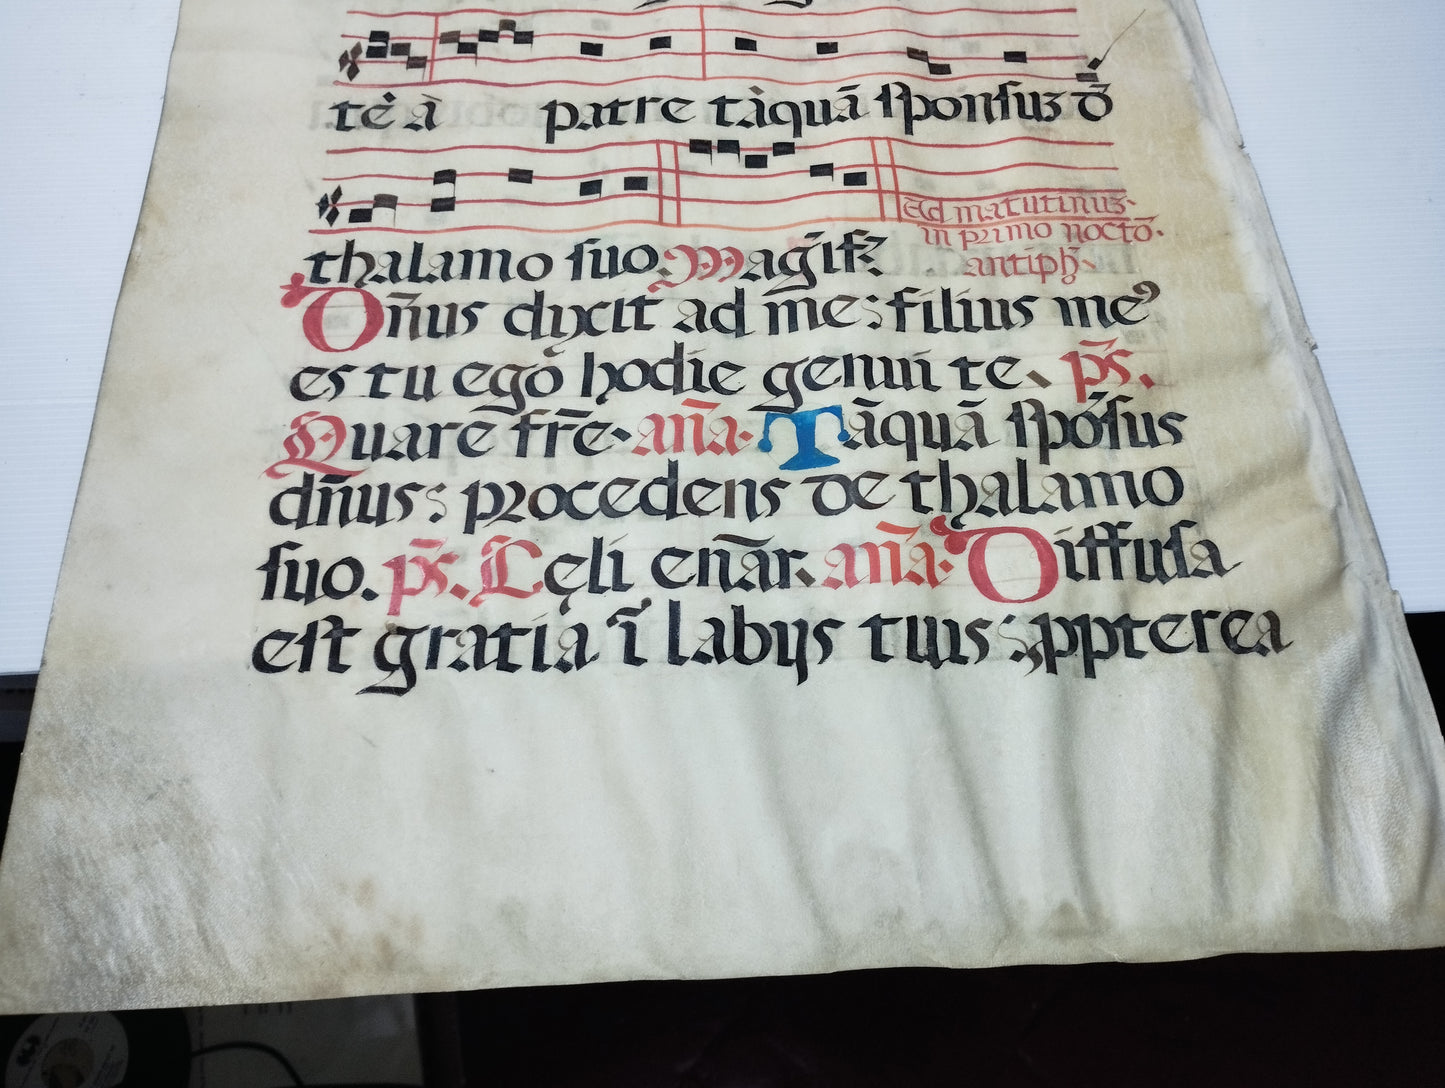 tė à patre tàquā ſponſuꝫ đ
thalamo ſuo. Magīfꝫ
Ad matutinuꝫ.
in primo noctō.
antiph̄.
Dn̄us dixit ad me: filius meꝰ
es tu ego hodie genui te. ps̄.
Quare frē. an̄a. Tāquā ſpōſus
dn̄us: procedens de thalamo
ſuo. ps̄. Cęli enār. an̄a. Diffuſa
eſt gratia ī labijs tuis: ꝓpterea